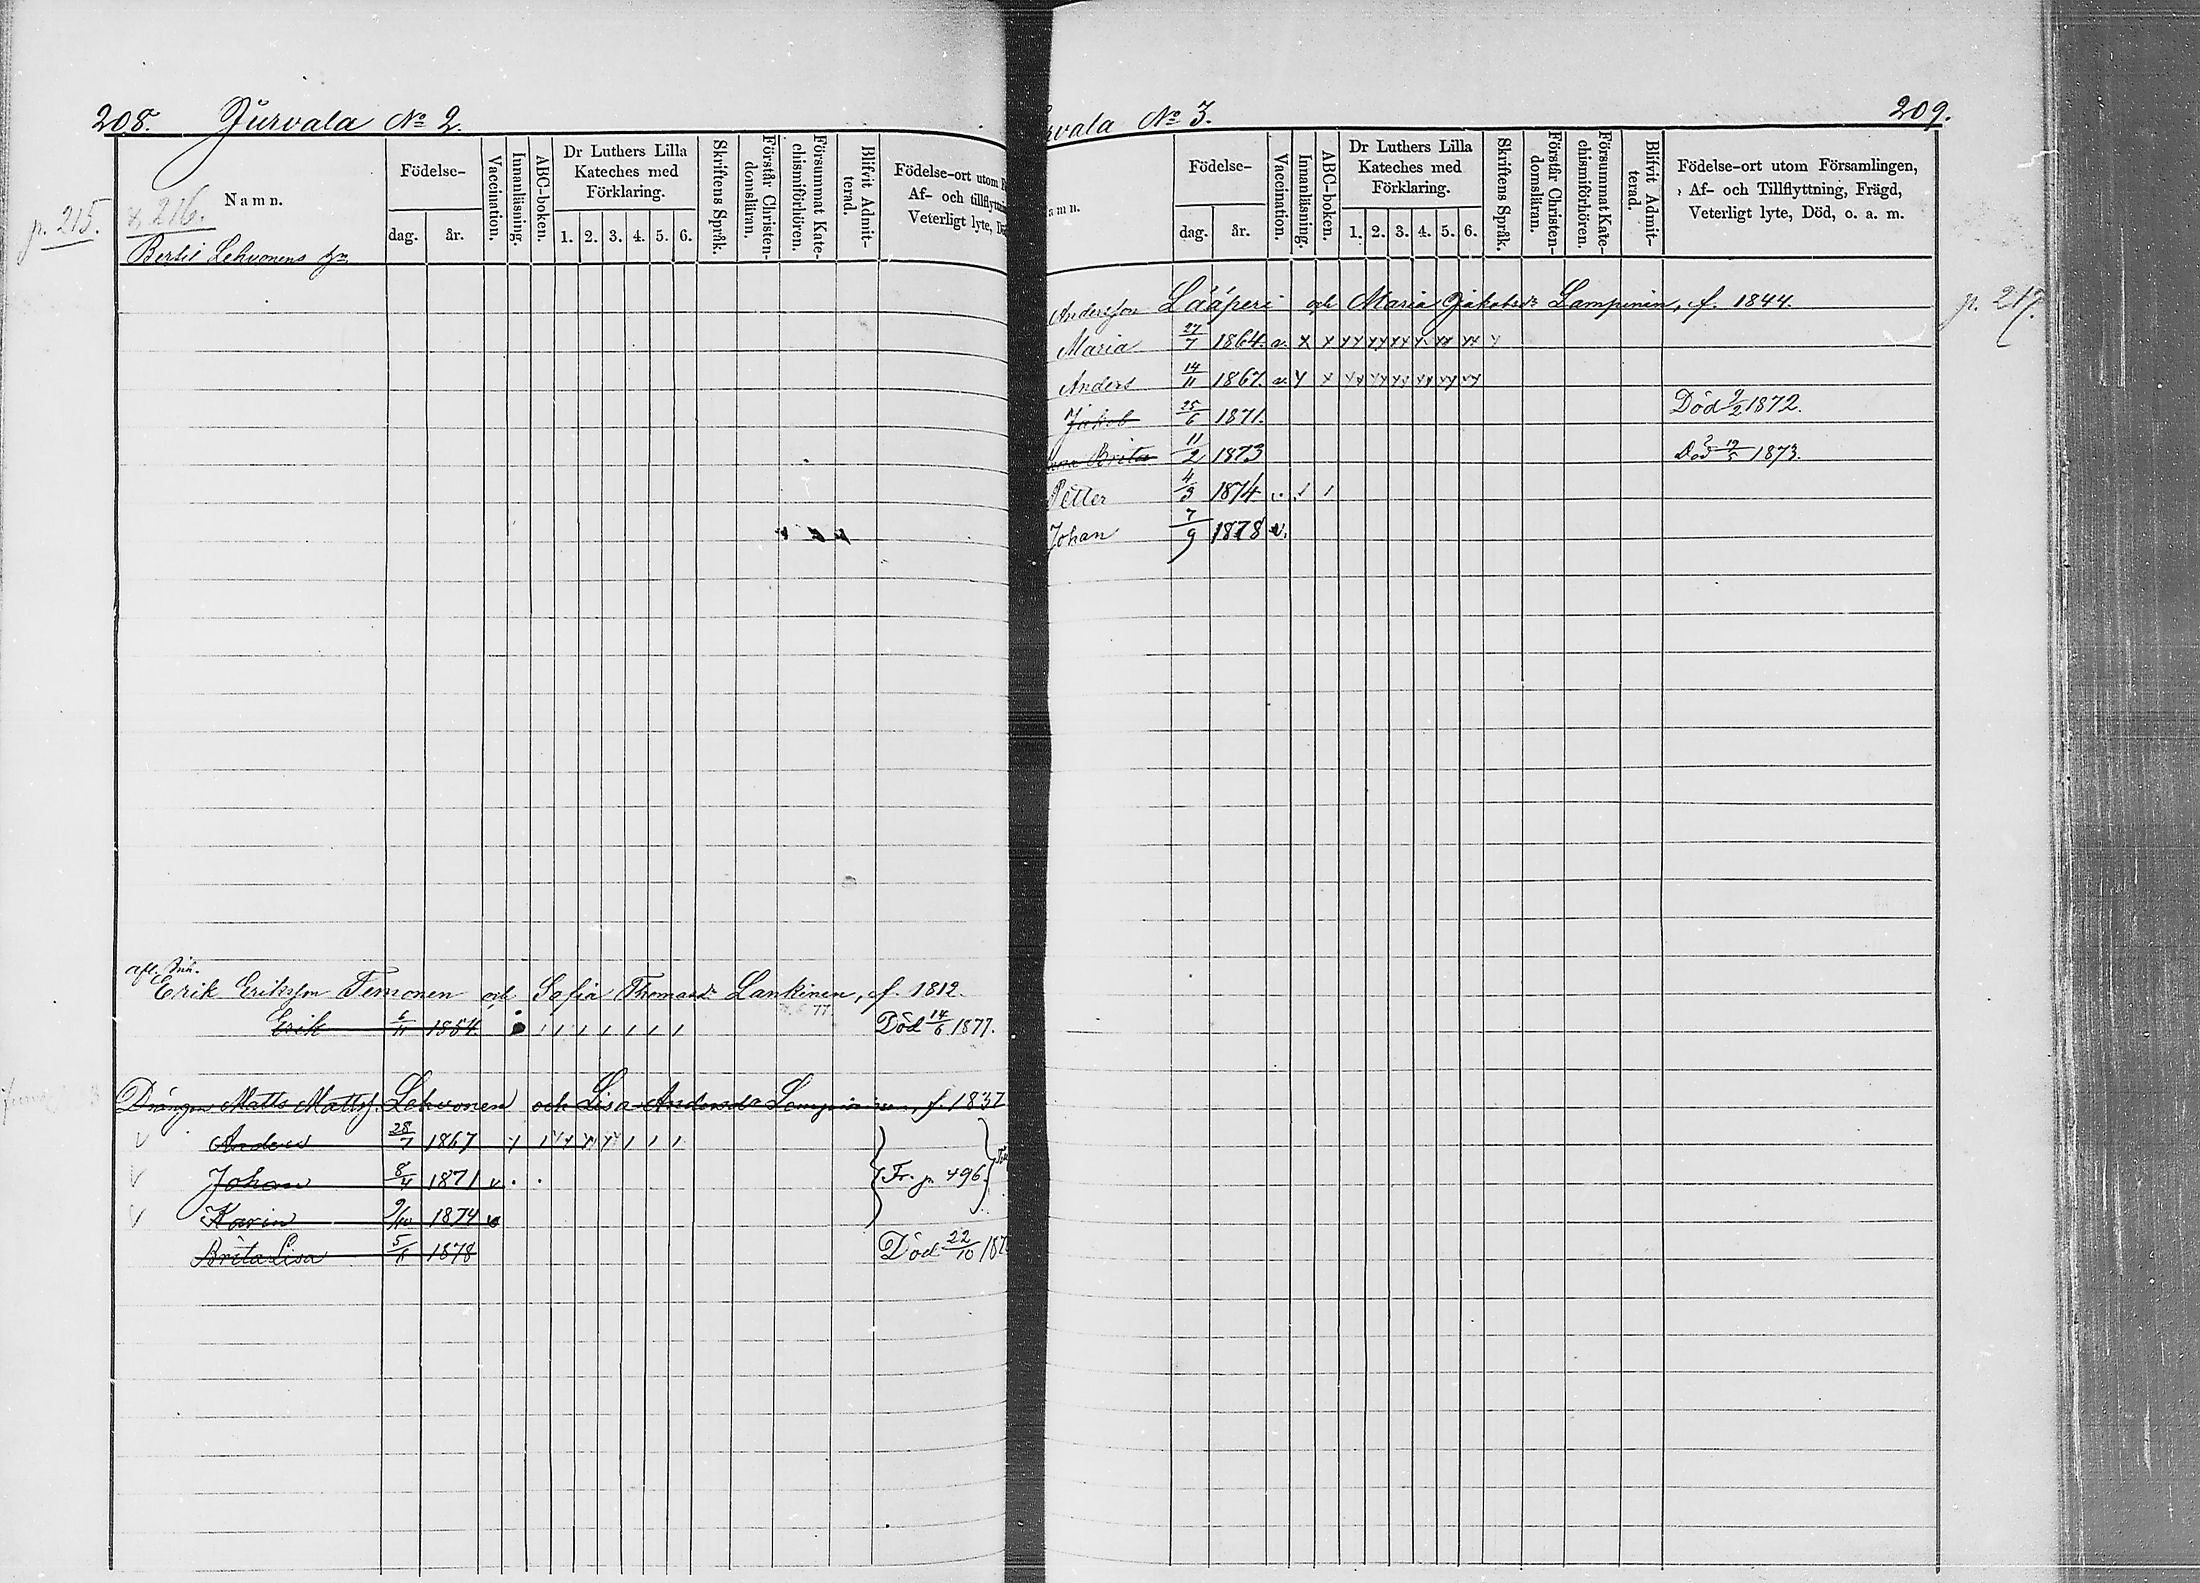 208. Jurvala No 2.
p. 215. 216.
Namn.
Födelse-
dag. år.
Vaccination.
Innanläsning.
ABC-boken.
Dr Luthers Lilla Kateches med Förklaring.
1. 2. 3. 4. 5. 6.
Skriftens Språk.
Förstår Christen-domsläran.
Försummat Kate-chismiförhören.
Blifvit Admit-terad.
Födelse-ort utom
Af- och tillflyttn
Veterligt lyte, Dö
Bertil Lehvonens
afl. Inh.
Erik Eriksson Temonen och Sofia Thomasdr Lankinen, f. 1812.
Erik 6/11 1854 Död 14/6 1877.
Drängen Matts Mattsf. Lehvonen och Lisa Andersdr Lempiäinen, f. 1837
Anders 28/7 1867
Johan 8/4 1871 v. Fr. p. 496.
Karin 9/10 1874 v
Brita Lisa 5/8 1878 Död 22/10 187
rvala No 3. 209.
amn.
Födelse-
dag. år.
Vaccination.
Innanläsning.
ABC-boken.
Dr Luthers Lilla Kateches med Förklaring.
1. 2. 3. 4. 5. 6.
Skriftens Språk.
Förstår Christen-domsläran.
Försummat Kate-chismiförhören.
Blifvit Admit-terad.
Födelse-ort utom Församlingen,
Af- och Tillflyttning, Frägd,
Veterligt lyte, Död, o. a. m.
Andersson Lääperi och Maria Jakobsdr Lampinen, f. 1844. p. 217.
Maria 27/7 1864. v. x x xx xx xx x xx xx y
Anders 14/11 1867. v. y x xx xx xx xx xx xx
Jakob 25/6 1871. Död 9/2 1872.
Brita 11/2 1873 Död 19/5 1873.
Petter 4/3 1874 v.
Johan 7/9 1878 v.